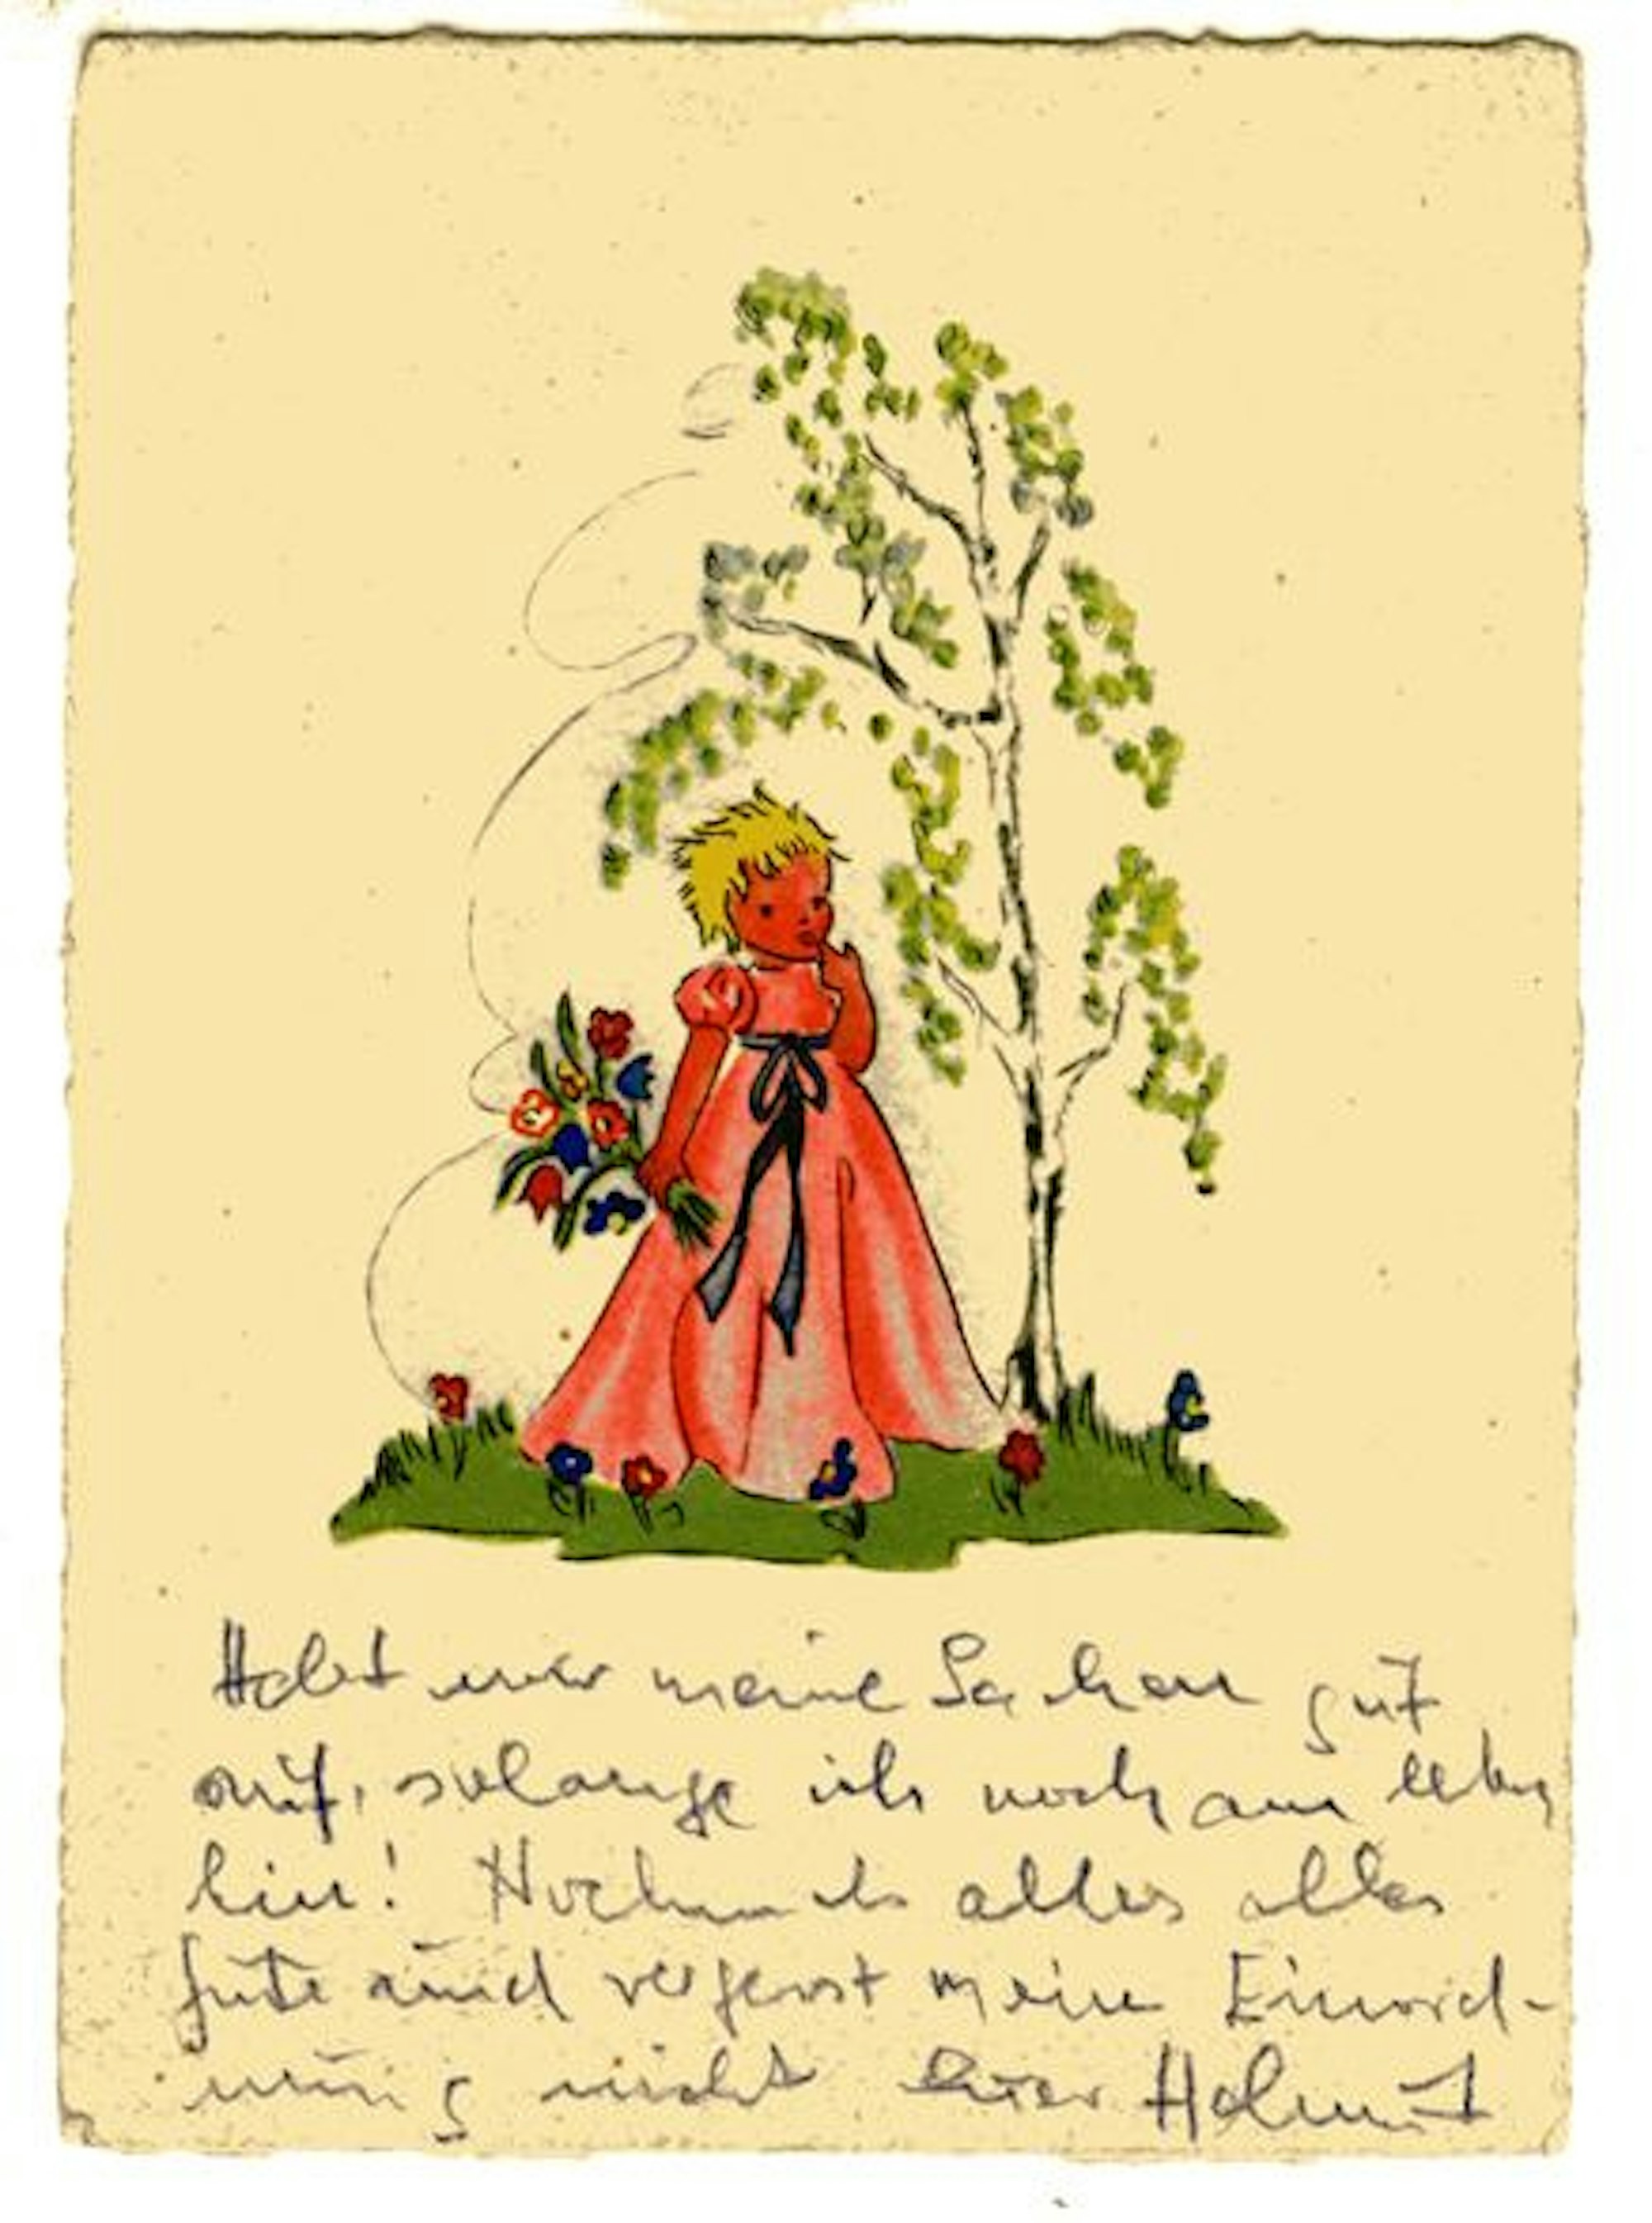 Hebt mir meine Sachen gut
auf, solange ich noch am leben
bin! Nochmals alles alles
gute und vergesst meine Einord-
nung nicht Euer Helmut